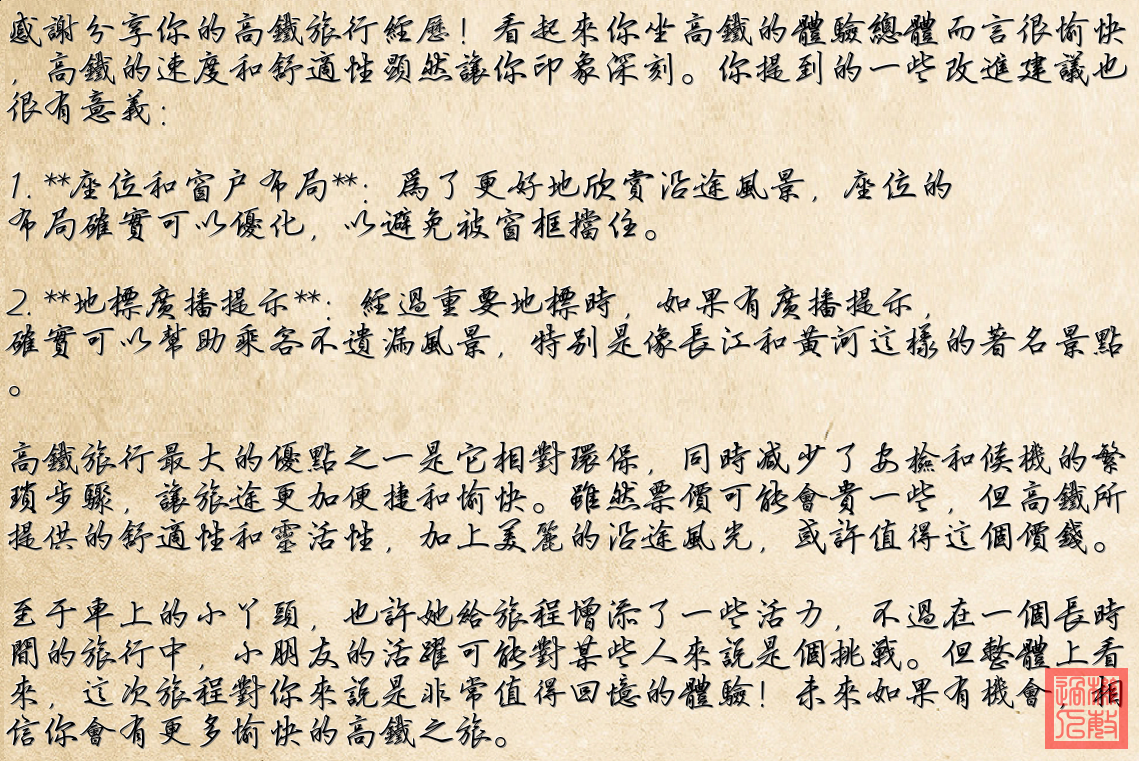 感謝分享你的高鐵旅行經歷！看起來你坐高鐵的體驗總體而言很愉快
，高鐵的速度和舒適性顯然讓你印象深刻。你提到的一些改進建議也
很有意義：
1. **座位和窗户布局**：爲了更好地欣賞沿途風景，座位的
布局確實可以優化，以避免被窗框擋住。
2. **地標廣播提示**：經過重要地標時，如果有廣播提示，
確實可以幫助乘客不遺漏風景，特别是像長江和黄河這樣的著名景點
。
高鐵旅行最大的優點之一是它相對環保，同時减少了安檢和候機的繁
瑣步驟，讓旅途更加便捷和愉快。雖然票價可能會貴一些，但高鐵所
提供的舒適性和靈活性，加上美麗的沿途風光，或許值得這個價錢。
至于車上的小丫頭，也許她給旅程增添了一些活力，不過在一個長時
間的旅行中，小朋友的活躍可能對某些人來説是個挑戰。但整體上看
來，這次旅程對你來説是非常值得回憶的體驗！未來如果有機會，相
信你會有更多愉快的高鐵之旅。